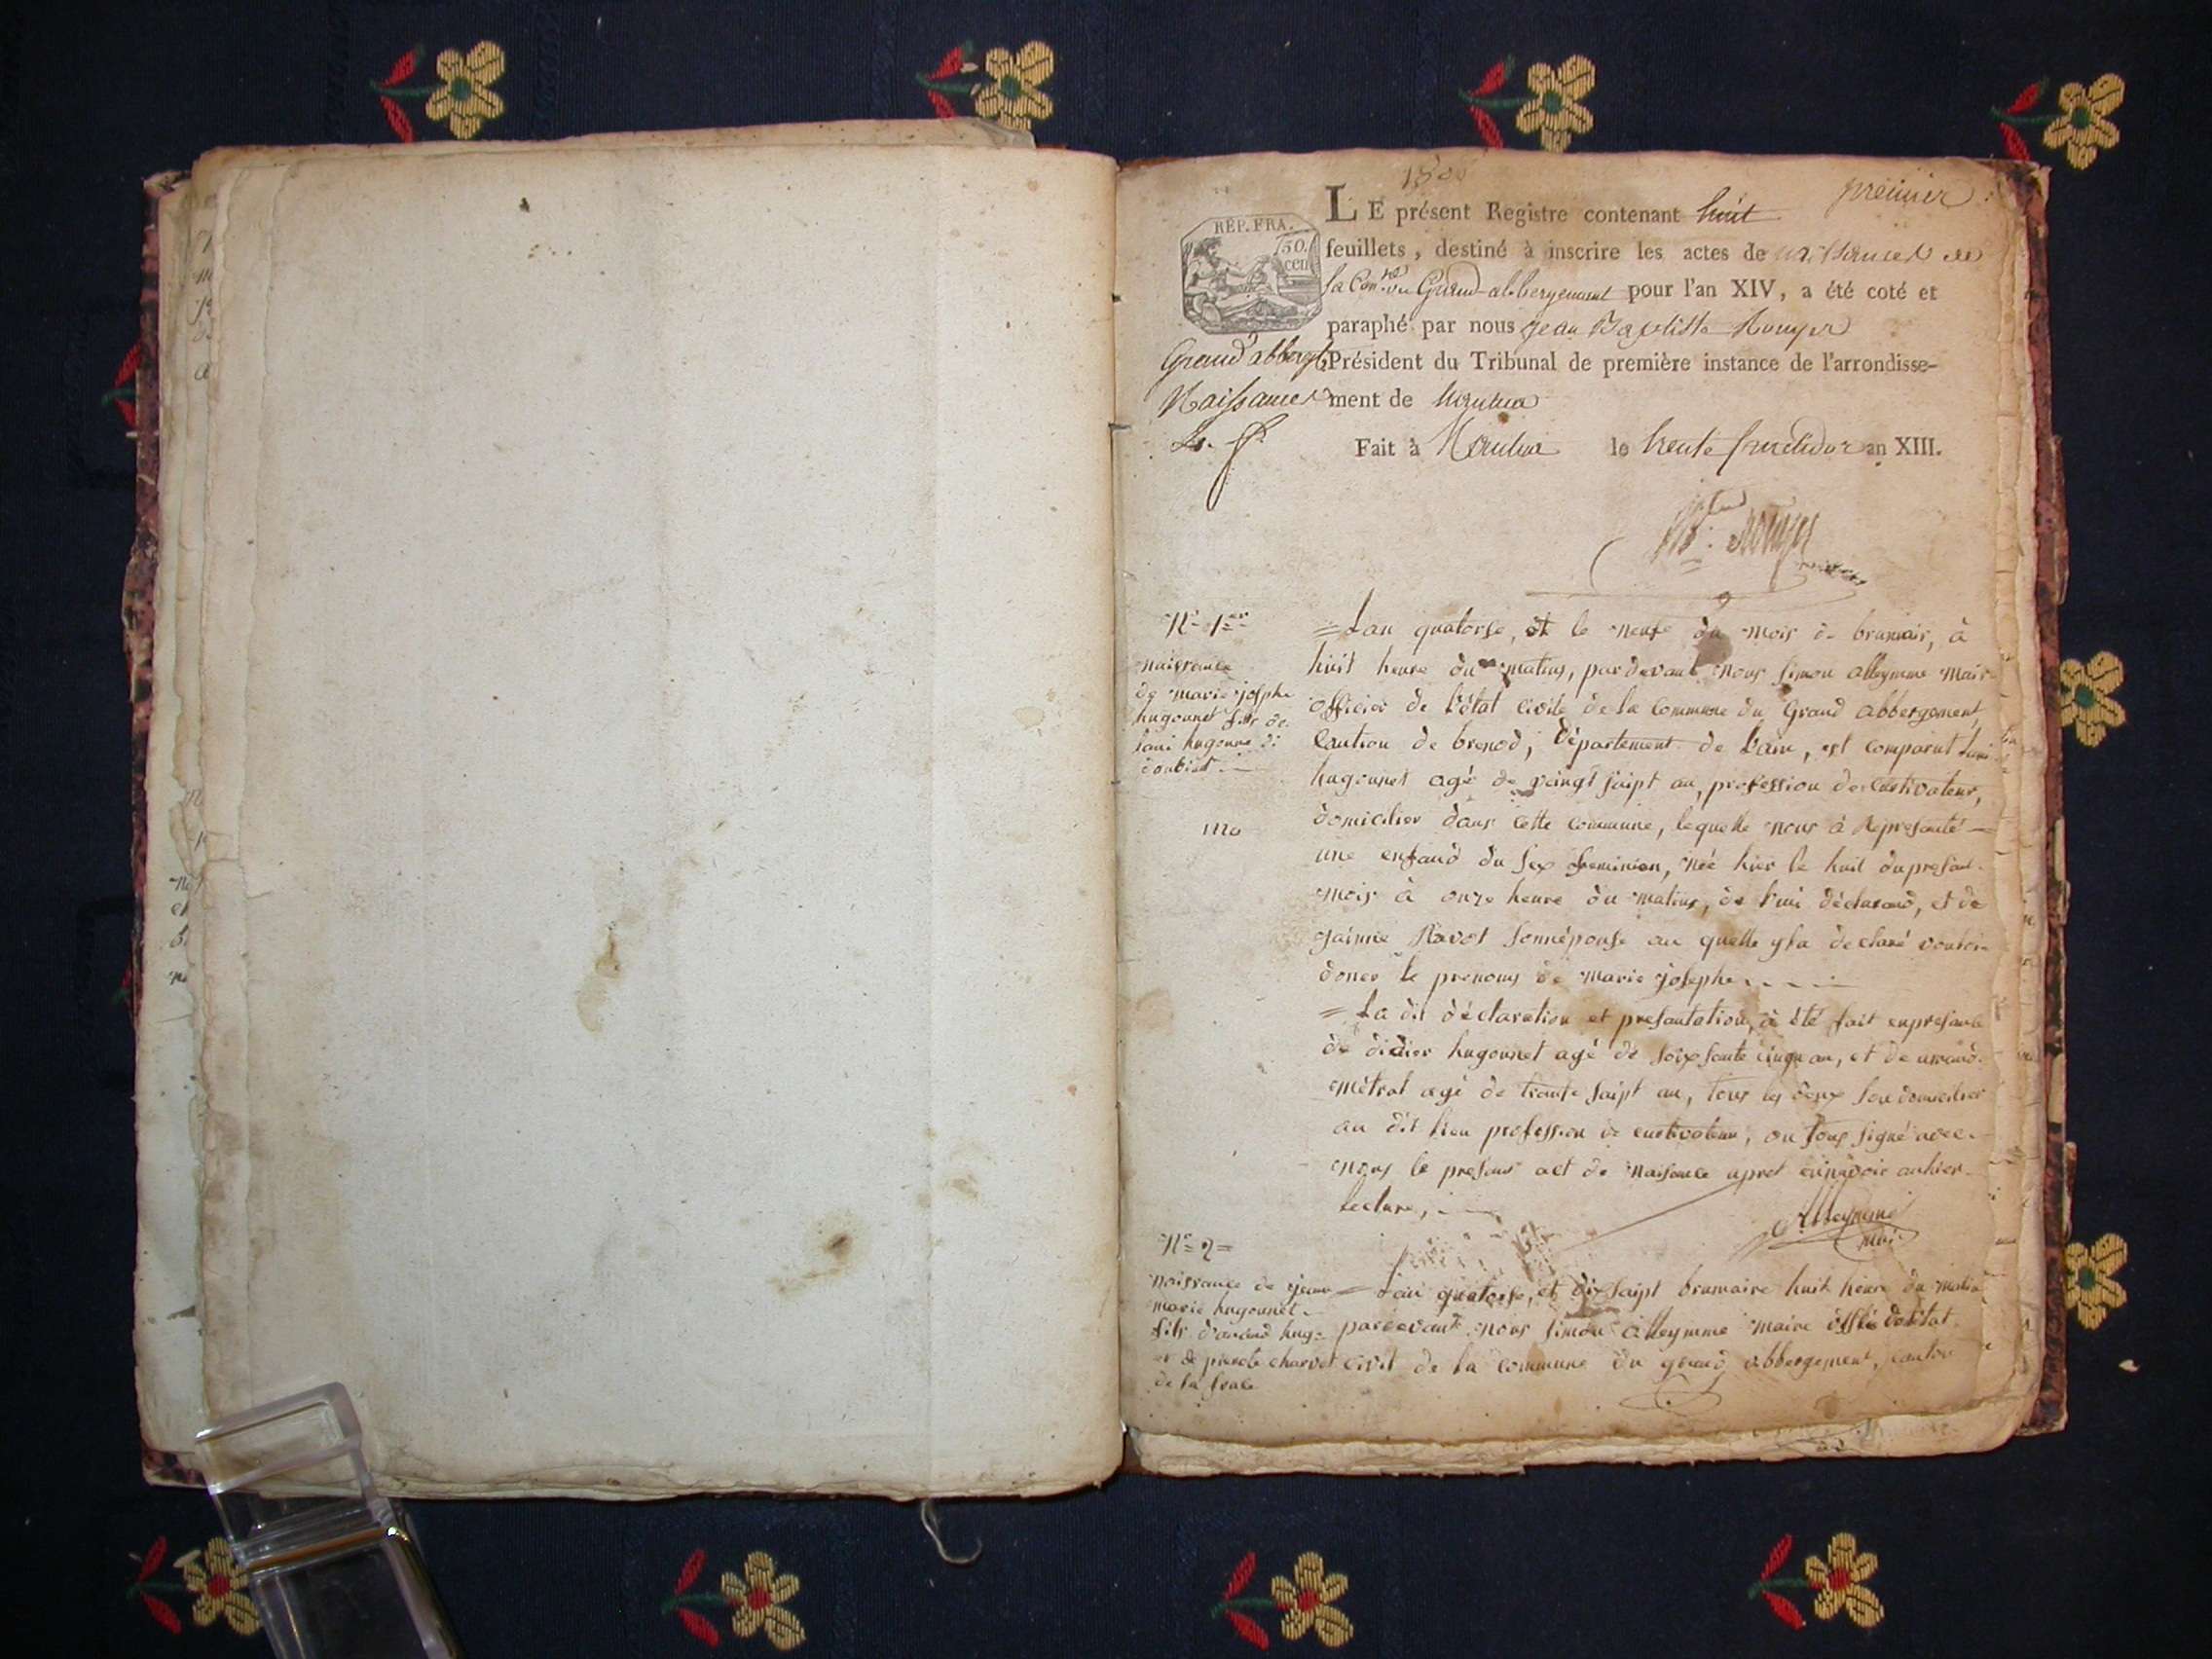 premier
LE présent Registre contenant huit
RÉP. FRA.
50.
cen
feuillets, destiné à inscrire les actes de naissances de
la Con.ne du Grand-abbergement pour l'an XIV, a été coté et
paraphé par nous Jean Baptiste Rouyer
Grand abbergt Président du Tribunal de première instance de l'arrondisse-
Naissances ment de Nantua
Fait à Nantua le trente fructidor an XIII.
N° 1er
naissance
de marie josphe
hugonnet fille de
Lan quatorse, et le neufe du mois de brumair, à
huit heure du matins, par devant nous simon alleymme mair
officier de l'état civile de la commune du Grand abbergement
Cantion de brenod, Département de l'ain, est comparut
hugonnet agé de vaingt saipt an, profession de cultivateur,
domicilier dans cette commune, lequelle nous à Represanté
une enfand du sex feminien, née hier le huit du presant
mois à onze heure du matins, de lui déclarand, et de
Ravot sonnépouse au quelle y la declaré vouloir
doner le prenoms de marie josephe
La dit déclaration et presantation à été fait enpresance
de didier hugonnet agé de soixsante cinque an, et de
métral agé de trante saipt an, tous les deux domicilier
au dit lieu profession de cultivateur, on tous signé avec
nous le presant act de naisance apret
lecture,
Alleymme
mair
N° 2
naissance de jean
marie hugonnet
fils d'arand hug
charvet
Lan quatorse, et dix saipt brumaire huit heure du matin
pardevant nous simon alleymme maire de létat
civil de la commune du grand abbergement, canton